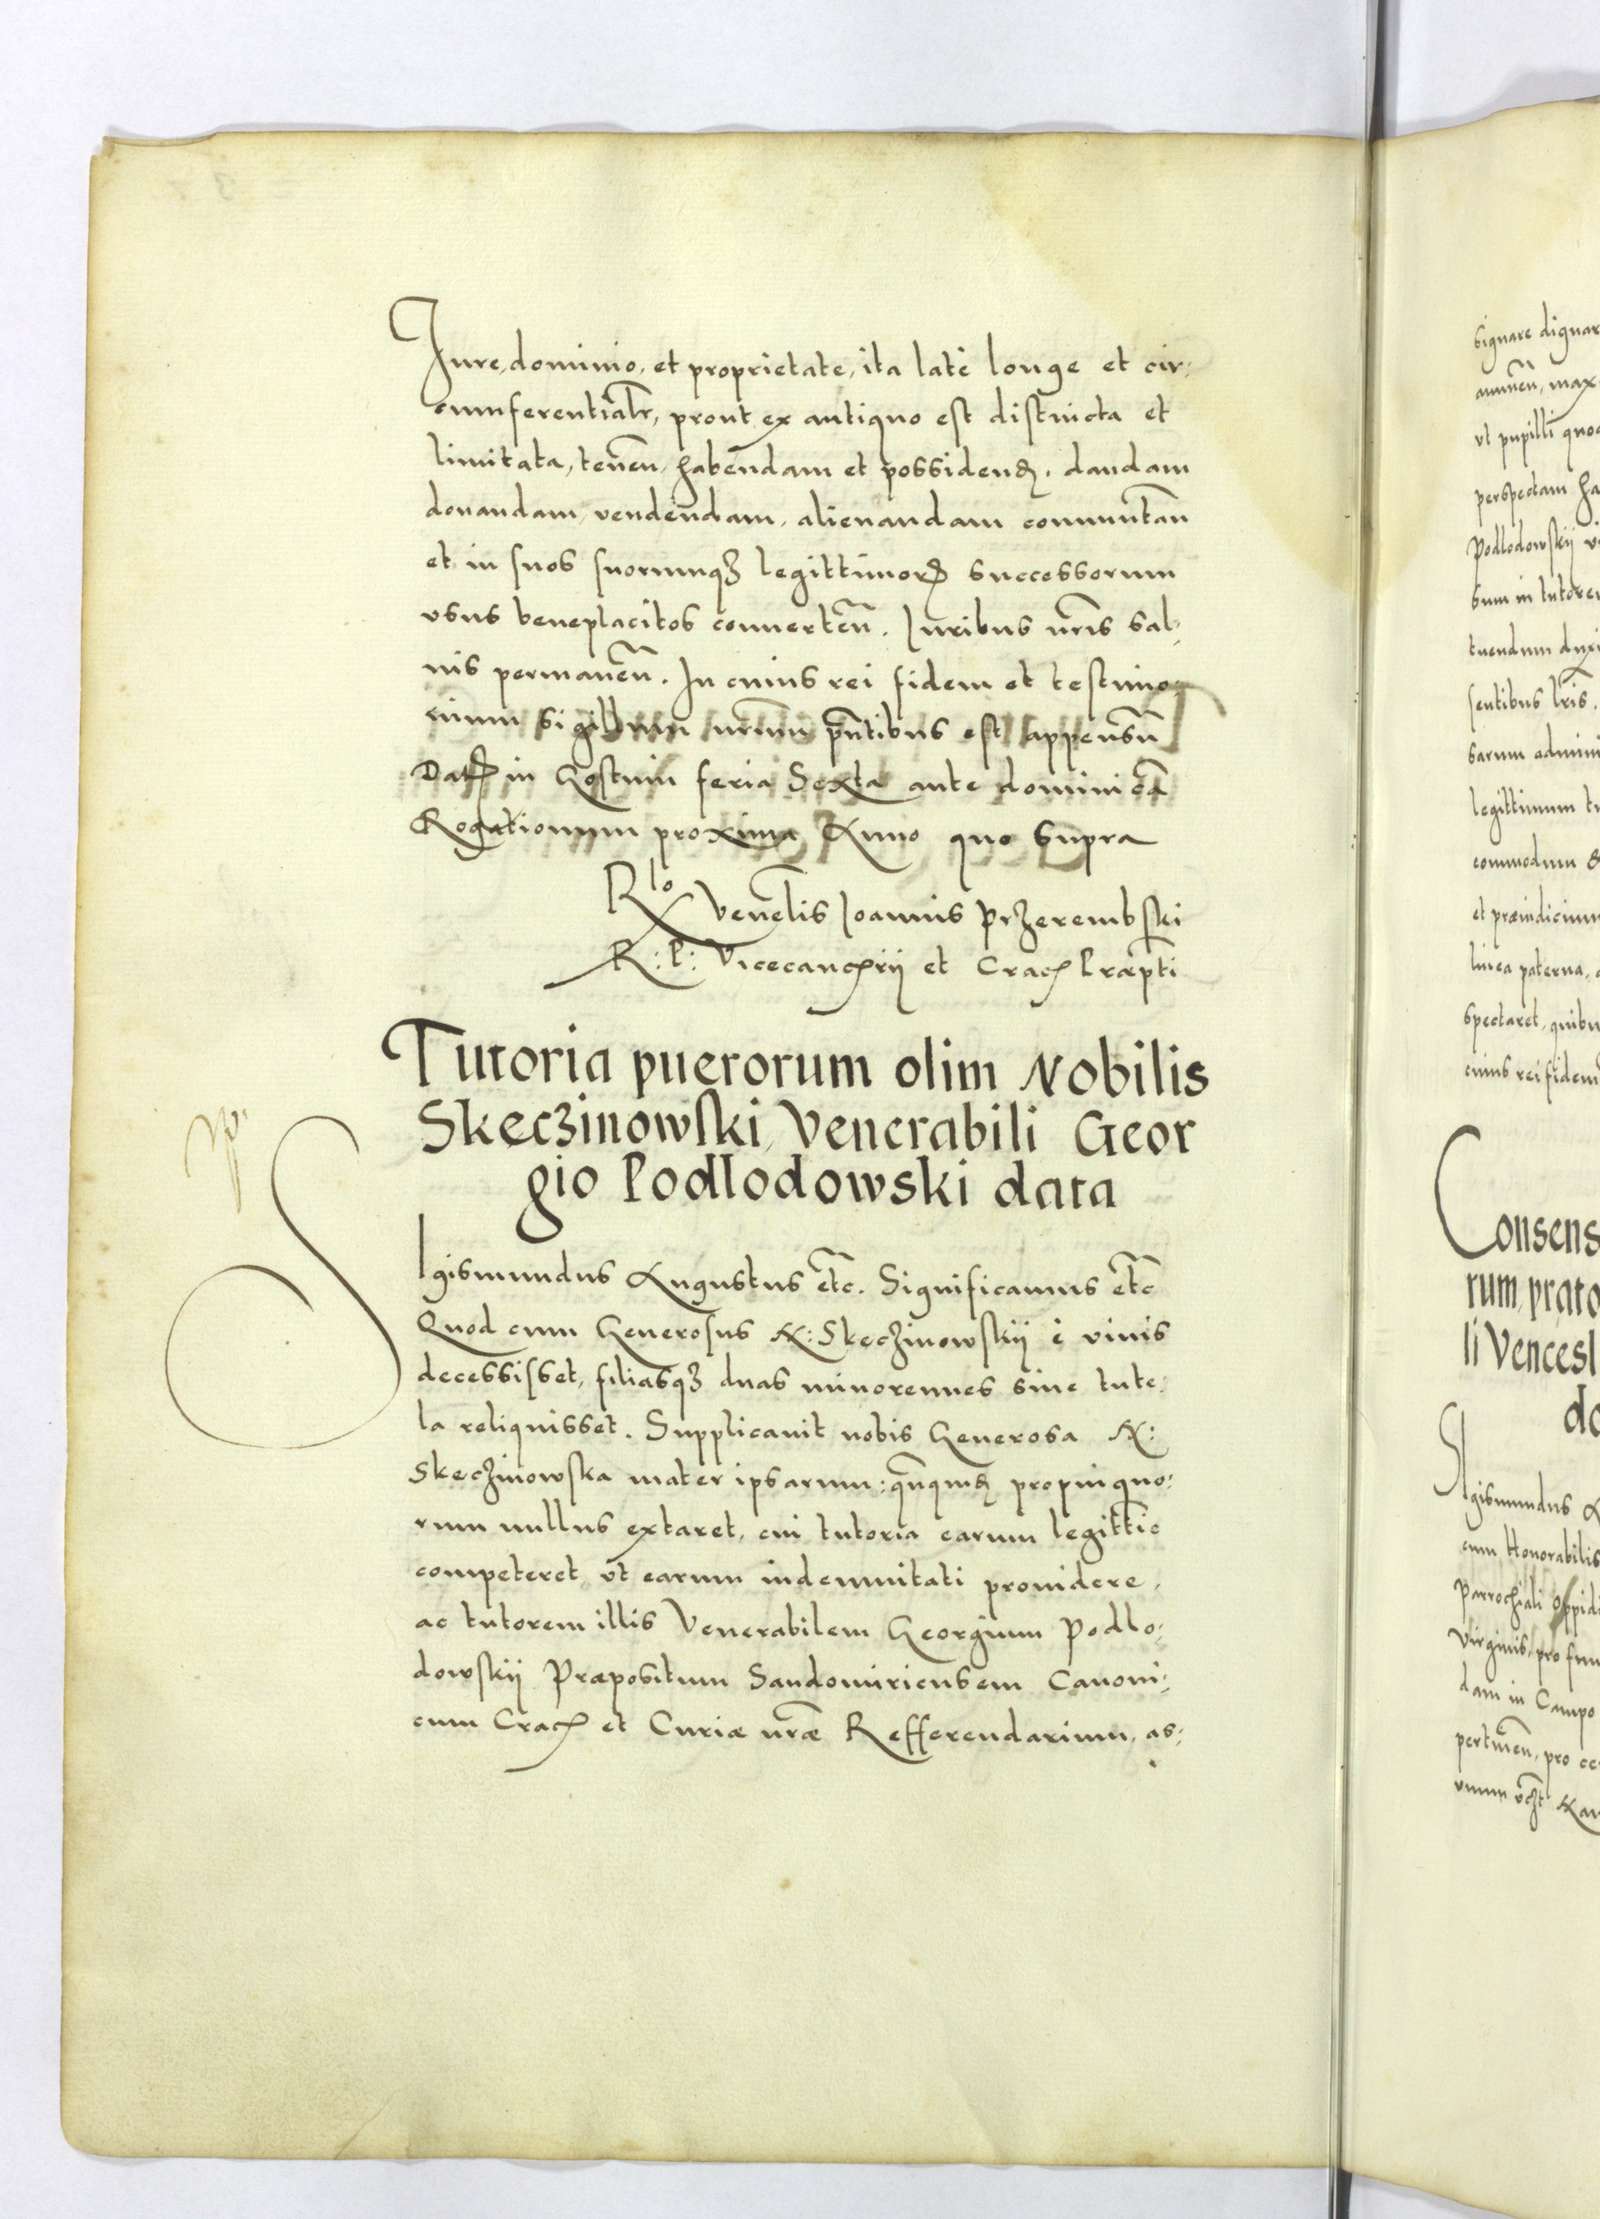 Jure, dominio, et proprietate, ita late longe et cir,
cumferentialr, prout ex antiquo est distincta et
limitata, teneñ, habendam et possidenđ, dandam
donandam, vendendam, alienandam commutãn
et in suos suorumqȝ legittimorꝝ successorum
vsus beneplacitos conuerteñ. Iuribus nr̃is sal,
uis permaneñ. In cuius rei fidem et testimo,
nium sigillum nr̃um pñtibus est appensũ
Datꝝ in Gostinin feria Sexta ante dominicã
Rogationum proxima Anno quo supra
Rlo Venelis Joannis Przerembski
R: P: Vicecancꝝrii et Cracꝝ Præpti
Tutoria puerorum olim Nobilis
Skeczinowski, Venerabili Geor
gio Podlodowski data
Sigismundus Augustus etc̃. Significamus etc̃
Quod cum Generosus N: Skeczinowskij è viuis
decessisset, filiasqȝ duas minorennes sine tute,
la reliquisset. Supplicauit nobis Generosa N:
Skeczinowska mater ipsarum: propinquo,
rum nullus extaret, cui tutoria earum legittie
competeret, vt earum indemnitati prouidere,
ac tutorem illis Venerabilem Georgium Podlo,
dowskij Præpositum Sandomiriensem Canoni,
cum Cracꝝ et Curiæ nr̃æ Refferendarium, as,
signare dignar
vt pupilli quo
perspectam ha
Podlodowskij vi
sum in tutore
tuendum duxi
sentibus lris.
sarum admini
legittimum tu
commodum
et præiudicium
linea paterna,
spectaret, quibu
cuius rei fidem
Consens
rum, prato
li Vencesl
do
Sigismundus A
cum Honorabilis
Parrochiali Oppid
Virginis, pro fun
dam in Campo
pertineñ, pro ce